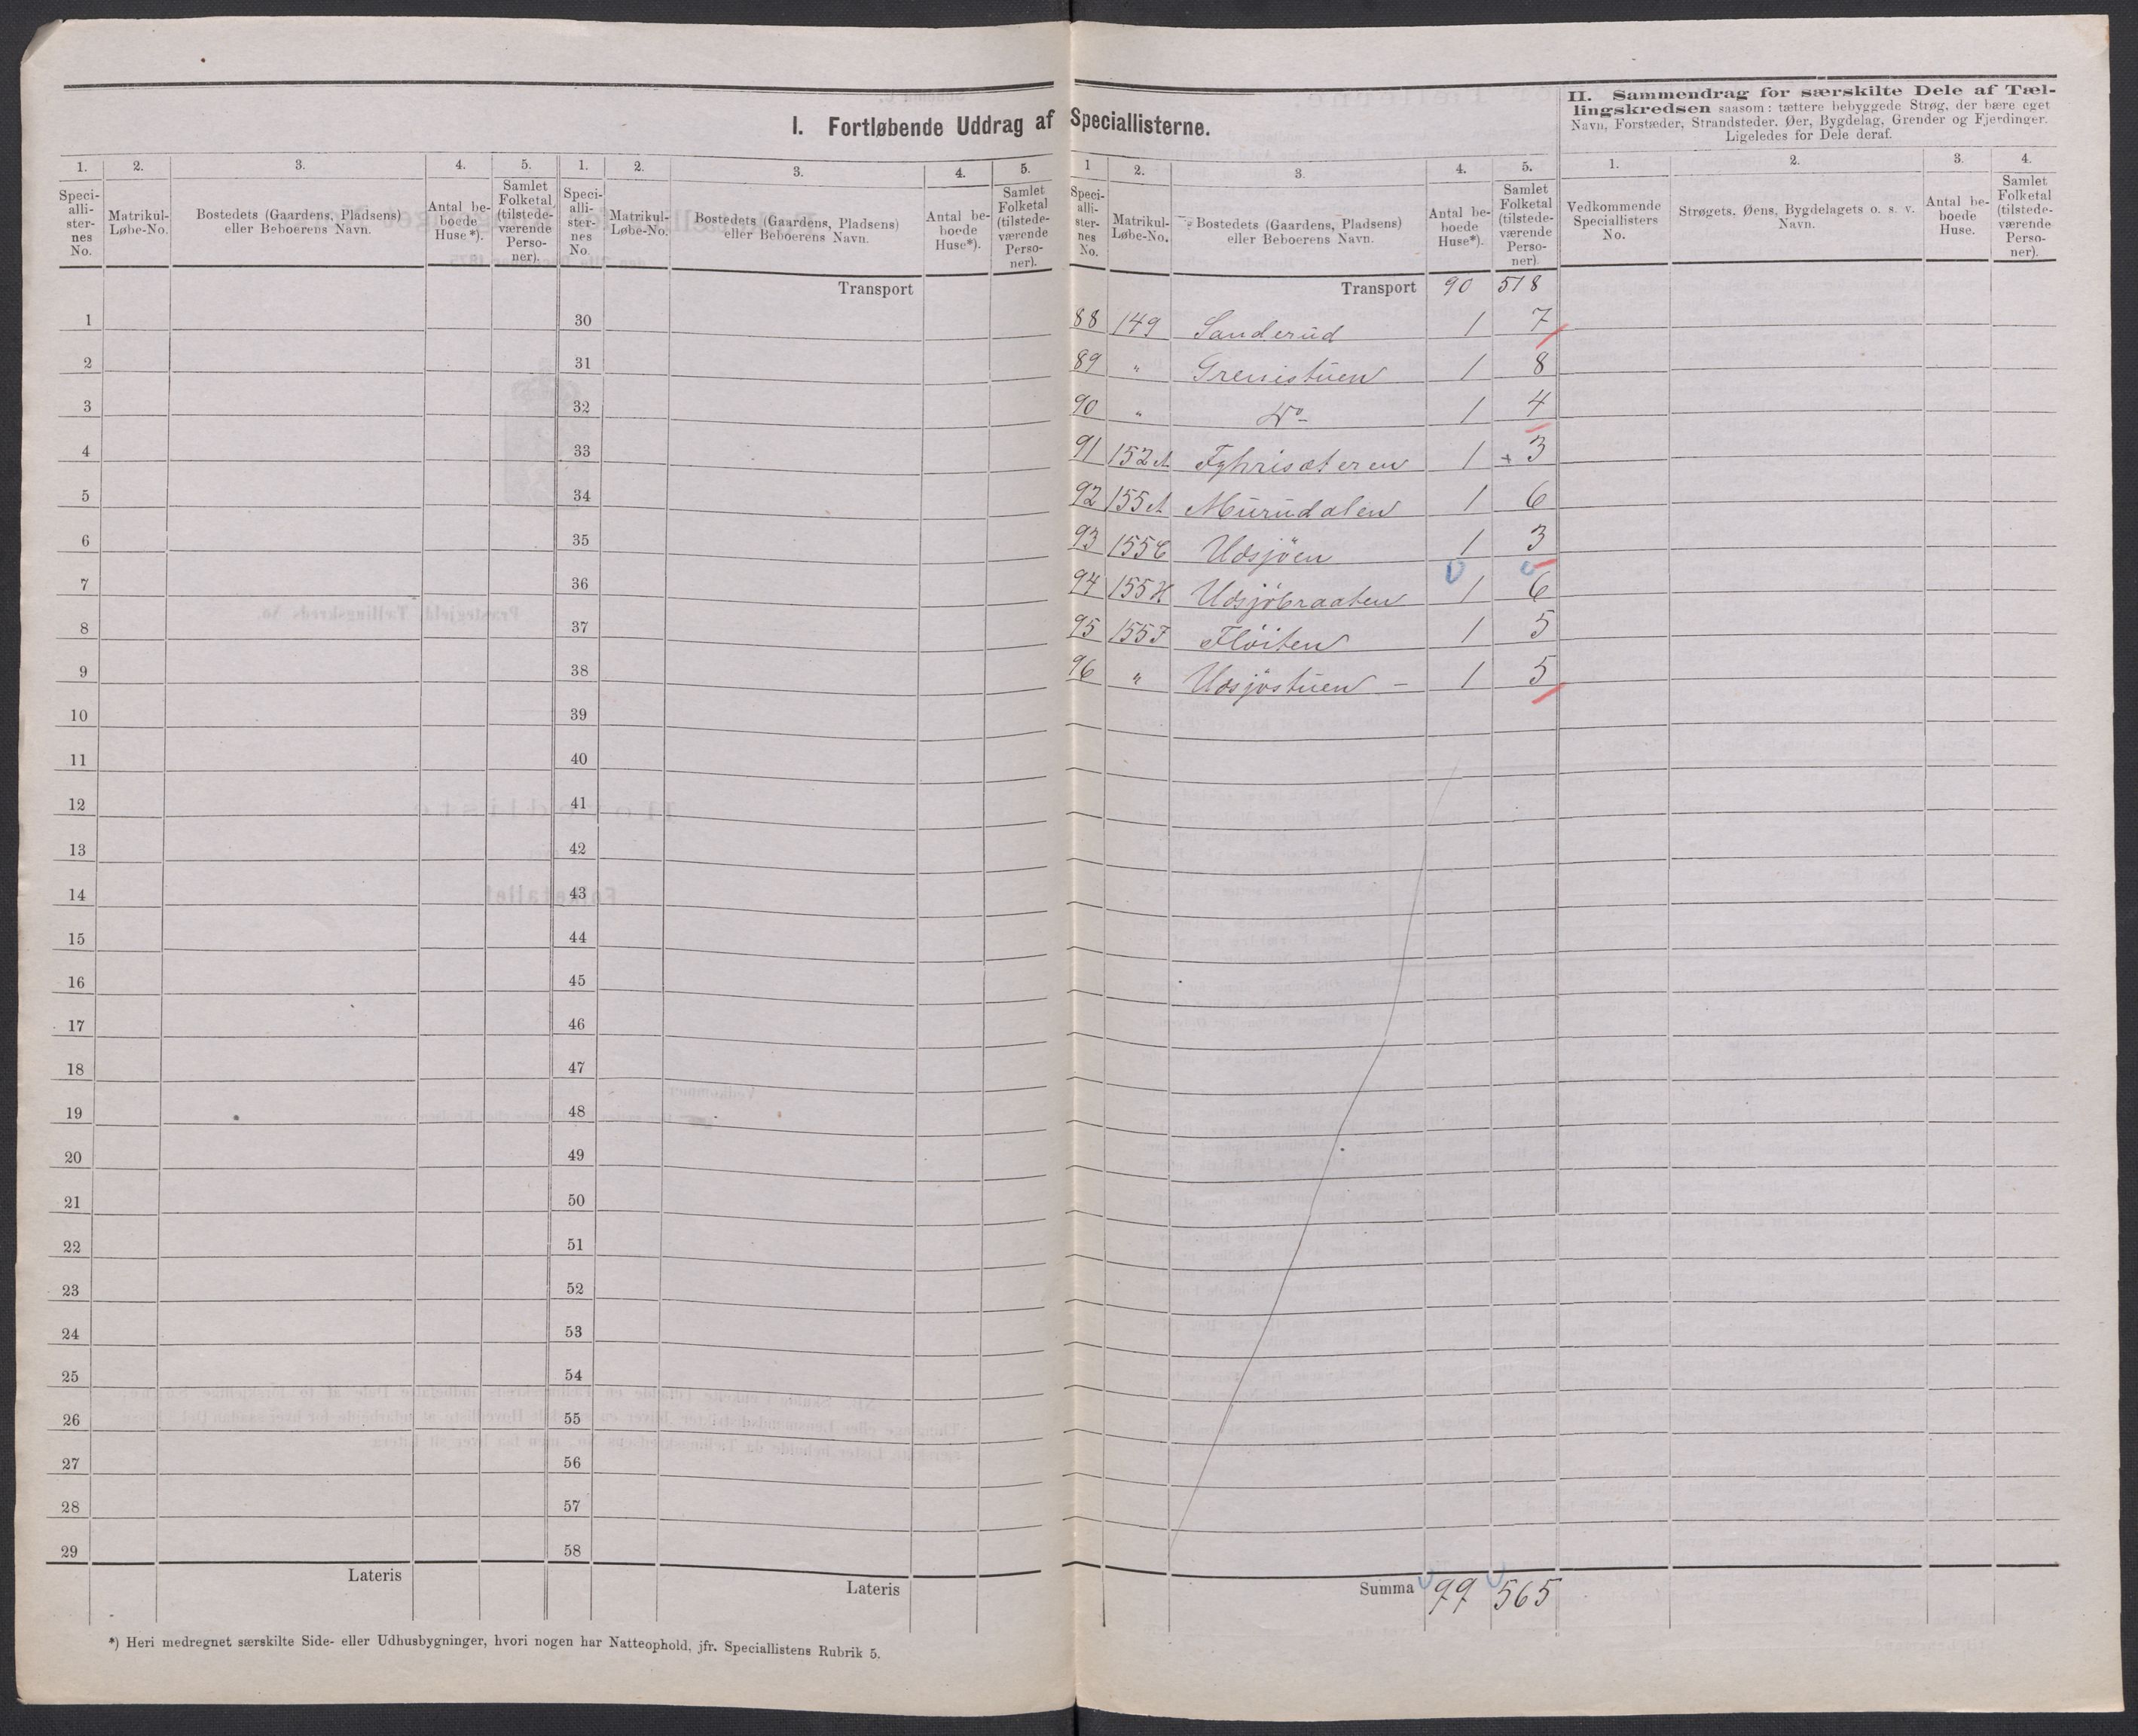 I. Fortløbende Uddrag af Speciallisterne.
II. Sammendrag for særskilte Dele af Tæl-
lingskredsen saasom: tættere bebyggede Strøg, der bære eget
Navn, Forstæder, Strandsteder, Øer, Bygdelag, Grender og Fjerdinger.
Ligeledes for Dele deraf.
1. 2. 3. 4. 5. 1. 2. 3. 4. 5. 1 2. 3. 4. 5. 1. 2. 3. 4.
Speci-
alli-
ster-
nes
No.
Matrikul-
Løbe-No.
Bostedets (Gaardens, Pladsens)
eller Beboerens Navn.
Antal be-
boede
Huse*).
Samlet
Folketal
(tilstede-
værende
Perso-
ner).
Speci-
alli-
ster-
nes
No.
Matrikul-
Løbe-No.
Bostedets (Gaardens, Pladsens)
eller Beboerens Navn.
Antal be-
boede
Huse*).
Samlet
Folketal
(tilstede-
værende
Perso-
ner).
Speci-
alli-
ster-
nes
No.
Matrikul-
Løbe-No.
Bostedets (Gaardens, Pladsens)
eller Beboerens Navn.
Antal be-
boede
Huse*).
Samlet
Folketal
(tilstede-
værende
Perso-
ner).
Vedkommende
Speciallisters
No.
Strøgets, Øens, Bygdelagets o. s. v.
Navn.
Antal be-
boede
Huse.
Samlet
Folketal
(tilstede-
værende
Perso-
ner).
Transport Transport 90 518
1 30 88 149 Sanderud 1 7
2 31 89 " Grenistuen 1 8
3 32 90 " Do 1 4
4 33 91 152A Fyhrisæteren 1 + 3
5 34 92 155A Murudalen 1 6
6 35 93 155E Udsjöen 1 3
7 36 94 155H Udsjöbraaten 1 6
8 37 95 155F Flöiten 1 5
9 38 96 " Udsjöstuen – 1 5
10 39
11 40
12 41
13 42
14 43
15 44
16 45
17 46
18 47
19 48
20 49
21 50
22 51
23 52
24 53
25 54
26 55
27 56
28 57
29 58
Lateris Lateris Summa 99 565
*) Heri medregnet særskilte Side- eller Udhusbygninger, hvori nogen har Natteophold, jfr. Speciallistens Rubrik 5.